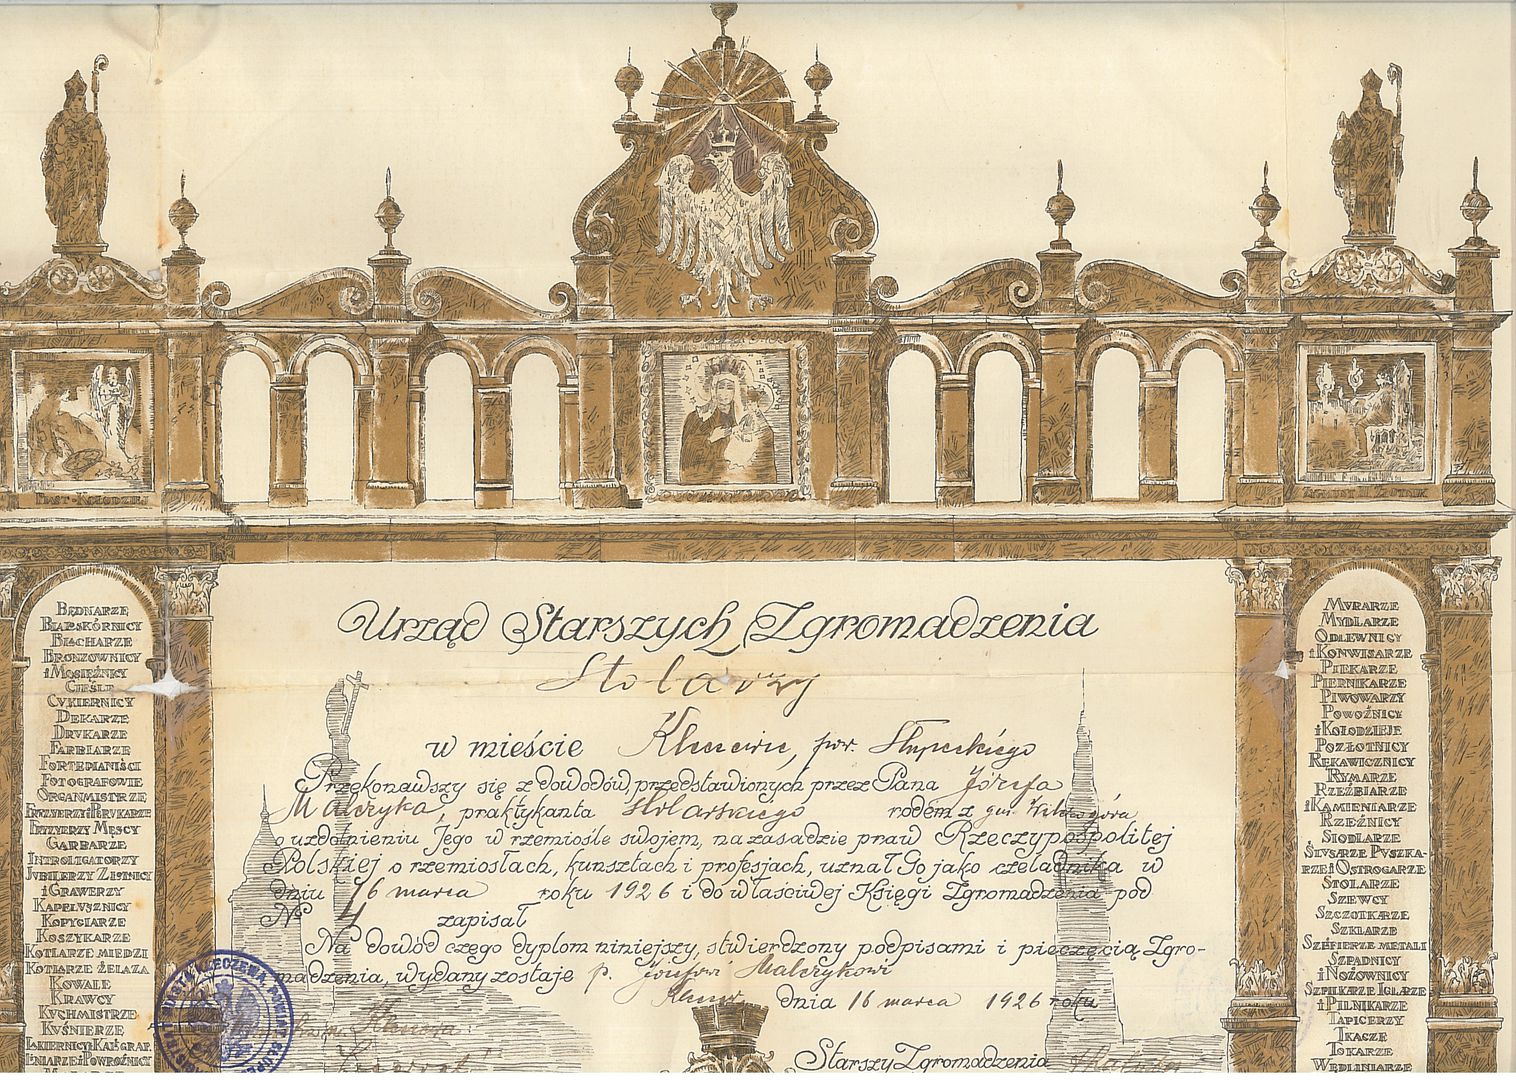 Piast-Kołodziej
Zygmunt III Złotnik
Bednarze
Białoskórnicy
Blacharze
Bronzownicy
i Mosiężnicy
Cieśle
Cukiernicy
Dekarze
Drukarze
Farbiarze
Fortepianiści
Fotografowie
Organmistrze
Fryzyerzy i Perukarze
Fryzyerzy Męscy
Garbarze
Introligatorzy
Jubilerzy Złotnicy
i Grawerzy
Kapelusznicy
Kopyciarze
Koszykarze
Kotlarze Miedzi
Kotlarze Żelaza
Kowale
Krawcy
Kuchmistrze
Kuśnierze
Lakiernicy i Kaligraf.
Liniarze i Powroźnicy
Urząd Starszych Zgromadzenia
Stolarzy
w mieście Kleczewie, pow. Słupeckiego
Przekonawszy się z dowodów, przedstawionych przez Pana Józefa
Malczyka, praktykanta stolarskiego rodem z gm.
o uzdolnieniu Jego w rzemiośle swojem, na zasadzie praw Rzeczypospolitej
Polskiej o rzemiosłach, kunsztach i profesjach, uznał Go jako czeladnika w
dniu 16 marca roku 1926 i do właściwej Księgi Zgromadzenia pod
№ 4 zapisał
Na dowód czego dyplom niniejszy, stwierdzony podpisami i pieczęcią Zgro-
madzenia, wydany zostaje p. Józefowi Malczykowi
dnia 16 marca 1926 roku
Starszy Zgromadzenia
Murarze
Mydlarze
Odlewnicy
i Konwisarze
Piekarze
Piernikarze
Piwowarzy
Powoźnicy
i Kołodzieje
Pozłotnicy
Rękawicznicy
Rymarze
Rzeźbiarze
i Kamieniarze
Rzeźnicy
Siodlarze
Ślusarze Puszka-
rze i Ostrogarze
Stolarze
Szewcy
Szczotkarze
Szklarze
Szlifierze Metali
Szpadnicy
i Nożownicy
Szpilkarze Iglarze
i Pilnikarze
Tapicerzy
Tkacze
Tokarze
Wędliniarze